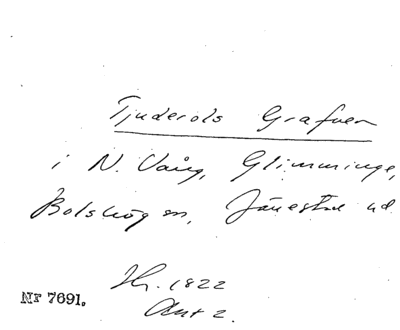 Tjuderols Grafver
i N. Vång, Glimminge,
Bolshög sn, Järrestad hd.
Hr. 1822
Ant 2.
Nr 7691.